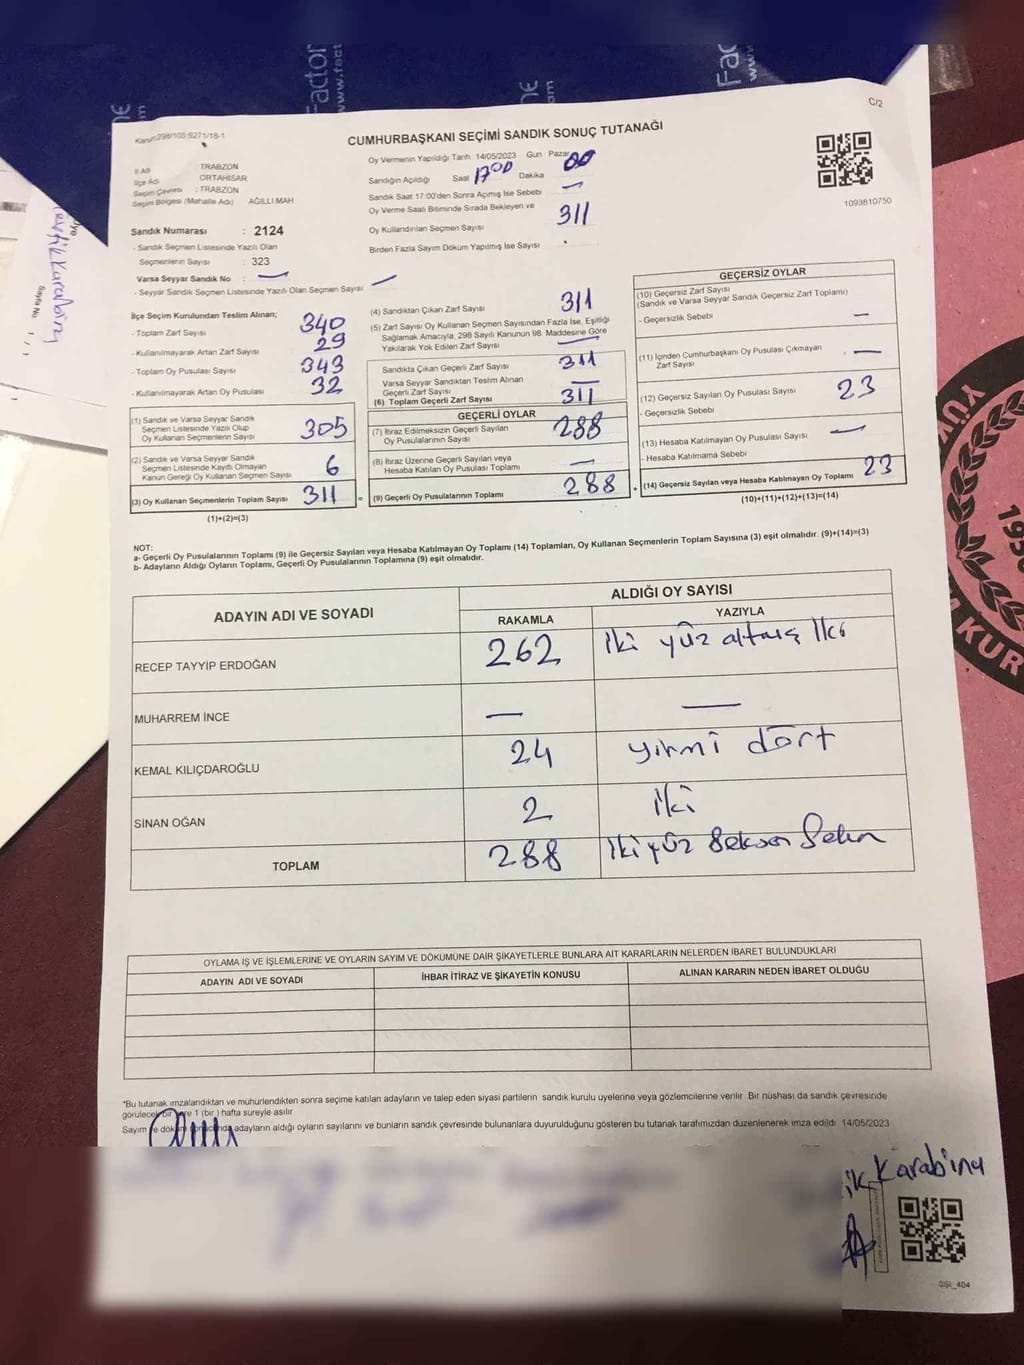 Factor
www.fact
C/2
Kanun:298/105:5271/18-1
CUMHURBAŞKANI SEÇİMİ SANDIK SONUÇ TUTANAĞI
İl Adı TRABZON
İlçe Adı ORTAHİSAR
Seçim Çevresi : TRABZON
Seçim Bölgesi (Mahalle Adı) AĞILLI MAH
Oy Vermenin Yapıldığı Tarih: 14/05/2023 Gun Pazar
Sandığın Açıldığı Saat 17:00 Dakika 00
Sandık Saat 17:00'den Sonra Açmış İse Sebebi —
Oy Verme Saati Bitiminde Sırada Bekleyen ve
Oy Kullandırılan Seçmen Sayısı 311
Birden Fazla Sayım Döküm Yapılmış İse Sayısı
1093810750
Sandık Numarası : 2124
- Sandık Seçmen Listesinde Yazılı Olan
Seçmenlerin Sayısı : 323
Varsa Seyyar Sandık No : —
- Seyyar Sandık Seçmen Listesinde Yazılı Olan Seçmen Sayısı —
İlçe Seçim Kurulundan Teslim Alınan;
- Toplam Zarf Sayısı 340
- Kullanılmayarak Artan Zarf Sayısı 29
- Toplam Oy Pusulası Sayısı 343
- Kullanılmayarak Artan Oy Pusulası 32
(1) Sandık ve Varsa Seyyar Sandık
Seçmen Listesinde Yazılı Olup
Oy Kullanan Seçmenlerin Sayısı 305
(2) Sandık ve Varsa Seyyar Sandık
Seçmen Listesinde Kayıtlı Olmayan
Kanun Gereği Oy Kullanan Seçmen Sayısı 6
(3) Oy Kullanan Seçmenlerin Toplam Sayısı 311 =
(1)+(2)=(3)
(4) Sandıktan Çıkan Zarf Sayısı 311
(5) Zarf Sayısı Oy Kullanan Seçmen Sayısından Fazla İse, Eşitliği
Sağlamak Amacıyla, 298 Sayılı Kanunun 98. Maddesine Göre
Yakılarak Yok Edilen Zarf Sayısı —
Sandıkta Çıkan Geçerli Zarf Sayısı 311
Varsa Seyyar Sandıktan Teslim Alınan
Geçerli Zarf Sayısı —
(6) Toplam Geçerli Zarf Sayısı 311
GEÇERLİ OYLAR
(7) İtiraz Edilmeksizin Geçerli Sayılan
Oy Pusulalarının Sayısı 288
(8) İtiraz Üzerine Geçerli Sayılan veya
Hesaba Katılan Oy Pusulası Toplamı —
(9) Geçerli Oy Pusulalarının Toplamı 288 +
GEÇERSİZ OYLAR
(10) Geçersiz Zarf Sayısı
(Sandık ve Varsa Seyyar Sandık Geçersiz Zarf Toplamı)
- Geçersizlik Sebebi —
(11) İçinden Cumhurbaşkanı Oy Pusulası Çıkmayan
Zarf Sayısı —
(12) Geçersiz Sayılan Oy Pusulası Sayısı 23
- Geçersizlik Sebebi
(13) Hesaba Katılmayan Oy Pusulası Sayısı —
- Hesaba Katılmama Sebebi
(14) Geçersiz Sayılan veya Hesaba Katılmayan Oy Toplamı 23
(10)+(11)+(12)+(13)=(14)
NOT:
a- Geçerli Oy Pusulalarının Toplamı (9) ile Geçersiz Sayılan veya Hesaba Katılmayan Oy Toplamı (14) Toplamları, Oy Kullanan Seçmenlerin Toplam Sayısına (3) eşit olmalıdır. (9)+(14)=(3)
b- Adayların Aldığı Oyların Toplamı, Geçerli Oy Pusulalarının Toplamına (9) eşit olmalıdır.
ADAYIN ADI VE SOYADI ALDIĞI OY SAYISI
RAKAMLA YAZIYLA
RECEP TAYYİP ERDOĞAN 262 İki yüz altmış İki
MUHARREM İNCE — —
KEMAL KILIÇDAROĞLU 24 yirmi dört
SİNAN OĞAN 2 İki
TOPLAM 288 İki yüz Seksen Sekiz
OYLAMA İŞ VE İŞLEMLERİNE VE OYLARIN SAYIM VE DÖKÜMÜNE DAİR ŞİKAYETLERLE BUNLARA AİT KARARLARIN NELERDEN İBARET BULUNDUKLARI
ADAYIN ADI VE SOYADI İHBAR İTİRAZ VE ŞİKAYETİN KONUSU ALINAN KARARIN NEDEN İBARET OLDUĞU
*Bu tutanak imzalandıktan ve mühürlendikten sonra seçime katılan adayların ve talep eden siyasi partilerin sandık kurulu üyelerine veya gözlemcilerine verilir. Bir nüshası da sandık çevresinde
görülecek bir yere 1 (bir) hafta süreyle asılır.
Sayım ve döküm sonucunda adayların aldığı oyların sayılarını ve bunların sandık çevresinde bulunanlara duyurulduğunu gösteren bu tutanak tarafımızdan düzenlenerek imza edildi. 14/05/2023
Karabina
Sayfa No 1 / 1
195
KUR